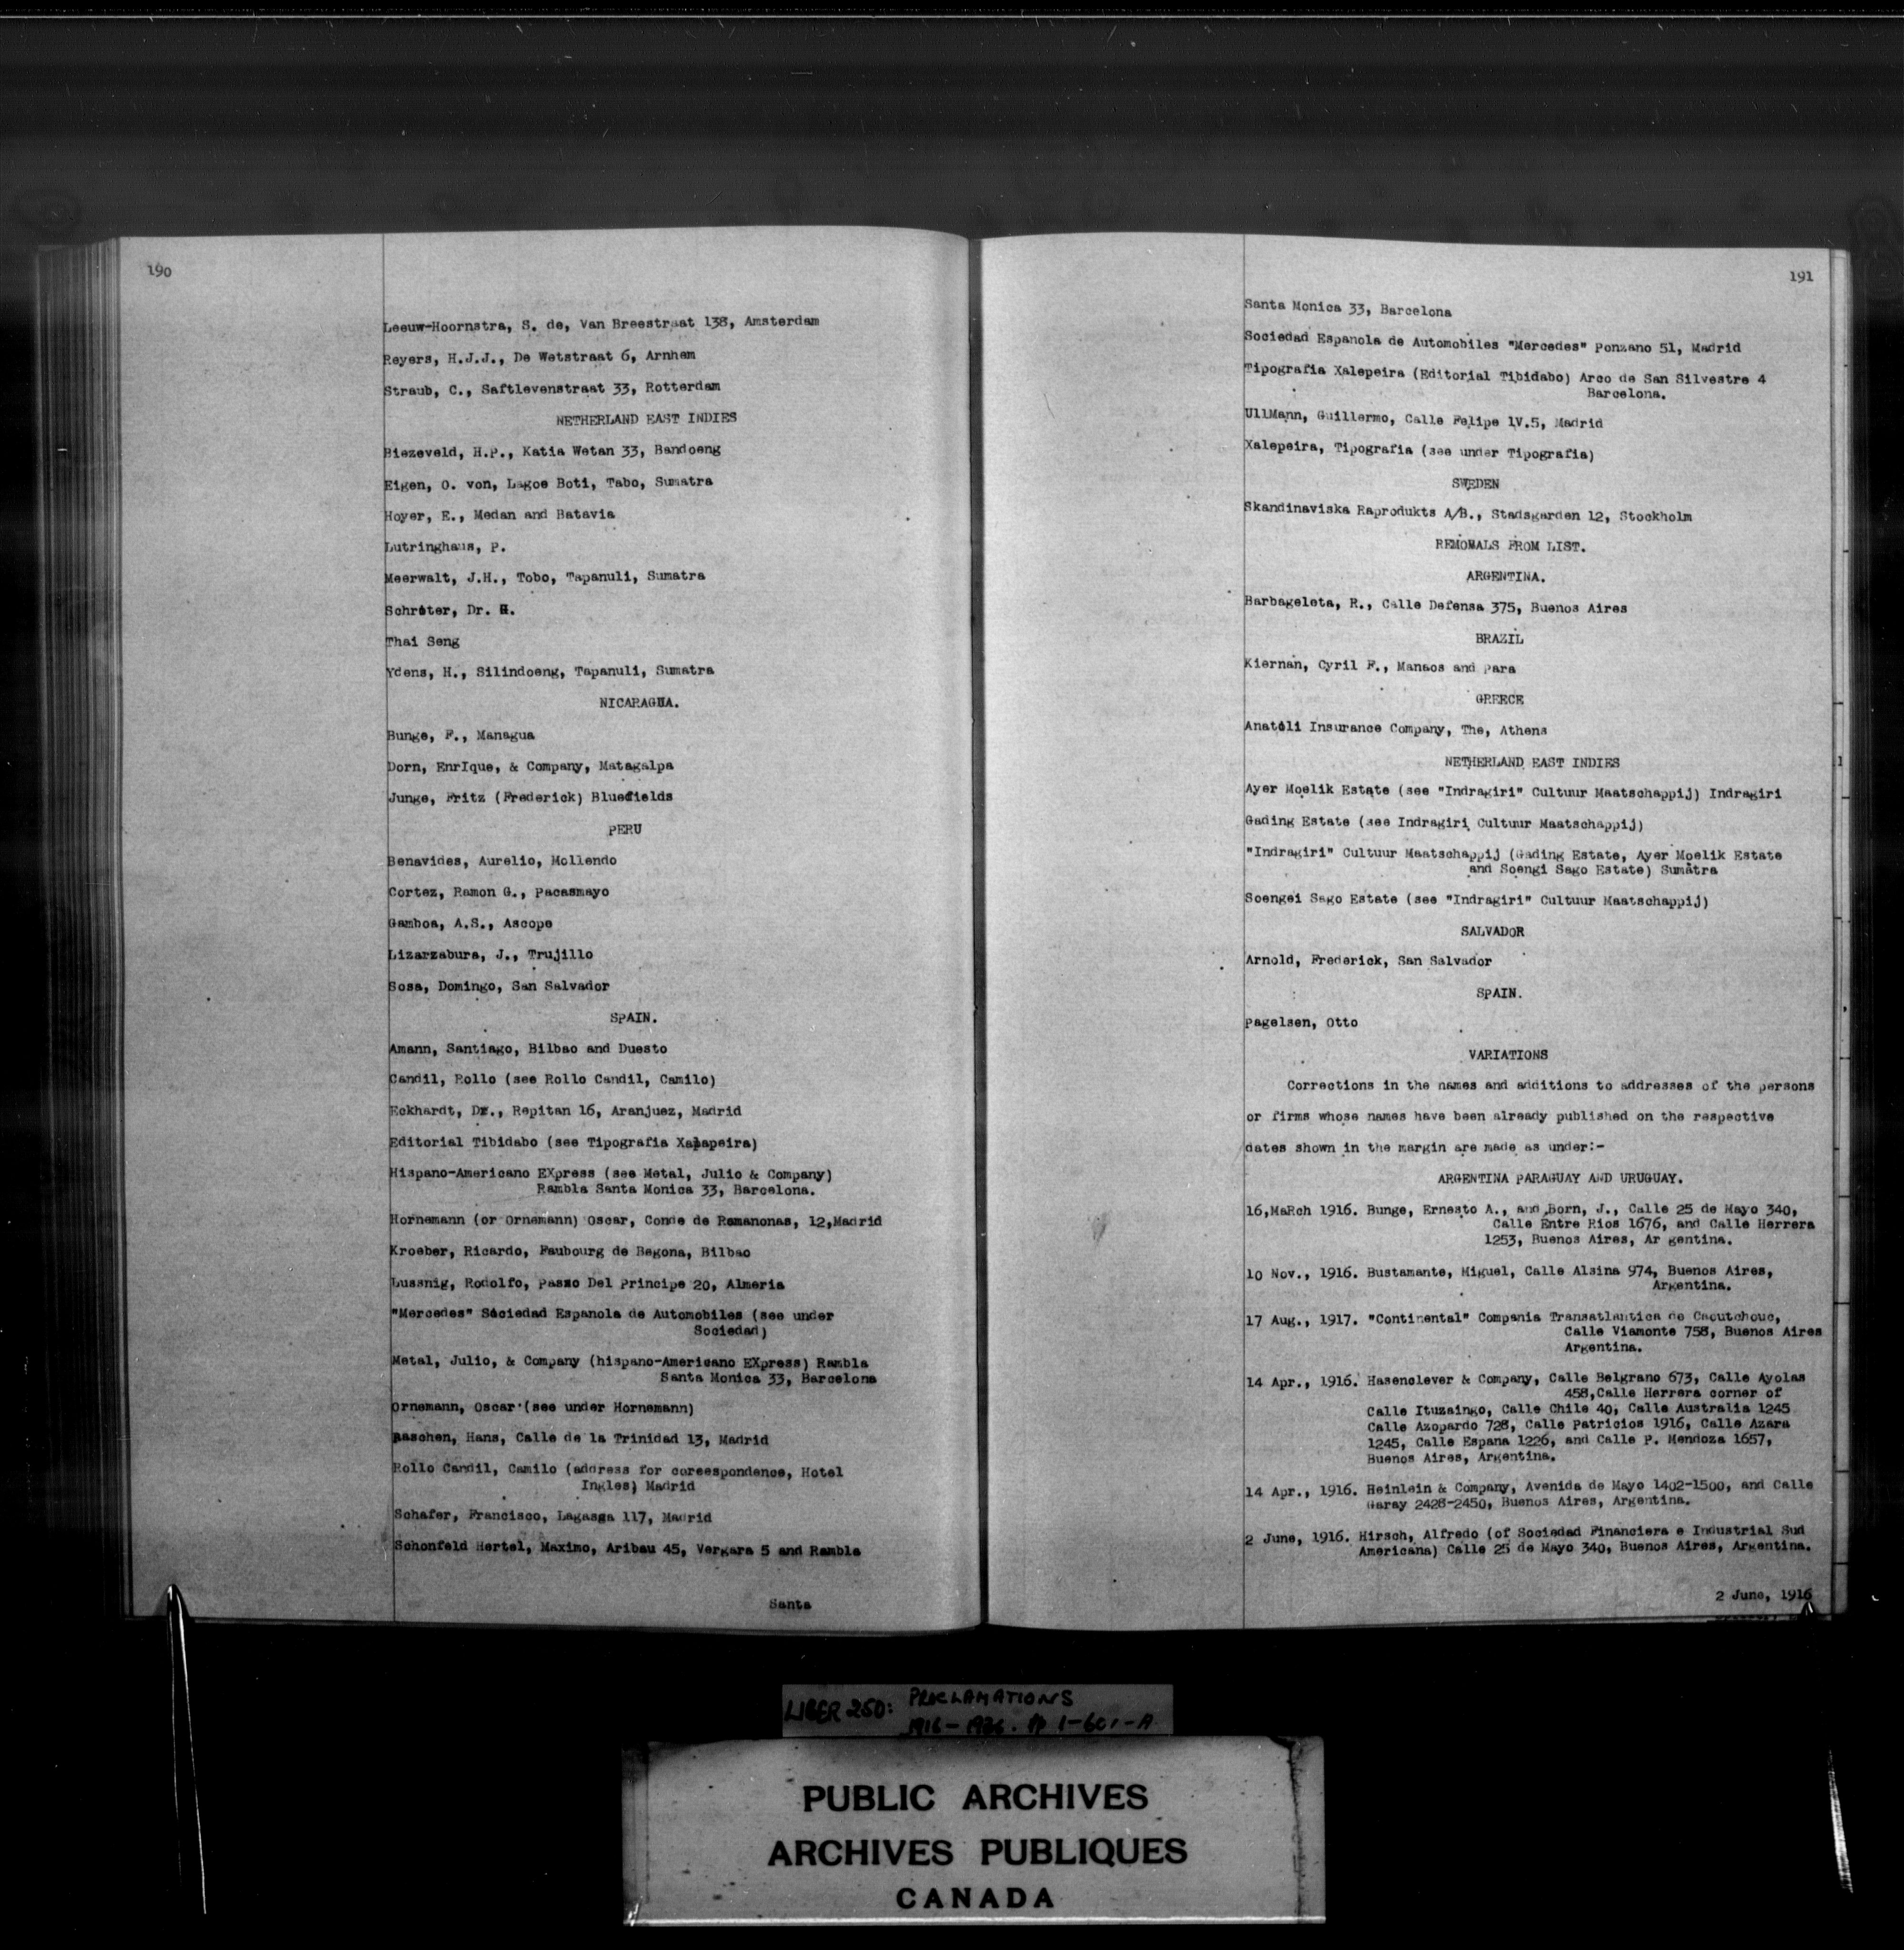 190
Leeuw-Hoornstra, S. de, Van Breestraat 138, Amsterdam
Reyers, H.J.J., De Wetstraat 6, Arnhem
Straub, C., Saftlevenstraat 33, Rotterdam
NETHERLAND EAST INDIES
Biezeveld, H.P., Katia Wetan 33, Bandoeng
Eigen, O. von, Lagoe Boti, Tabo, Sumatra
Hoyer, E., Medan and Batavia
Lutringhaus, P.
Meerwalt, J.H., Tobo, Tapanuli, Sumatra
Schroter, Dr. H.
Thai Seng
Ydens, H., Silindoeng, Tapanuli, Sumatra
NICARAGUA.
Bunge, F., Managua
Dorn, EnrIque, & Company, Matagalpa
Junge, Fritz (Frederick) Bluefields
PERU
Benavides, Aurelio, Mollendo
Cortez, Ramon G., Pacasmayo
Gamboa, A.S., Ascope
Lizarzabura, J., Trujillo
Sosa, Domingo, San Salvador
SPAIN.
Amann, Santiago, Bilbao and Duesto
Candil, Rollo (see Rollo Candil, Camilo)
Eckhardt, Dr., Repitan 16, Aranjuez, Madrid
Editorial Tibidabo (see Tipografia Xalapeira)
Hispano-Americano EXpress (see Metal, Julio & Company)
Rambla Santa Monica 33, Barcelona.
Hornemann (or Ornemann) Oscar, Conde de Romanonas, 12,Madrid
Kroeber, Ricardo, Faubourg de Begona, Bilbao
Lussnig, Rodolfo, Paseo Del Principe 20, Almeria
"Mercedes" Sociedad Espanola de Automobiles (see under
Sociedad)
Metal, Julio, & Company (hispano-Americano EXpress) Rambla
Santa Monica 33, Barcelona
Ornemann, Oscar (see under Hornemann)
Raschen, Hans, Calle de la Trinidad 13, Madrid
Rollo Candil, Camilo (address for coreespondence, Hotel
Ingles) Madrid
Schafer, Francisco, Lagasga 117, Madrid
Schonfeld Hertel, Maximo, Aribau 45, Vergara 5 and Rambla
Santa
191
Santa Monica 33, Barcelona
Sociedad Espanola de Automobiles "Mercedes" Ponzano 51, Madrid
Tipografia Xalepeira (Editorial Tibidabo) Arco de San Silvestre 4
Barcelona.
UllMann, Guillermo, Calle Felipe lV.5, Madrid
Xalepeira, Tipografia (see under Tipografia)
SWEDEN
Skandinaviska Raprodukts A/B., Stadsgarden 12, Stockholm
REMOVALS FROM LIST.
ARGENTINA.
Barbageleta, R., Calle Defensa 375, Buenos Aires
BRAZIL
Kiernan, Cyril F., Manaos and Para
GREECE
Anatoli Insurance Company, The, Athens
NETHERLAND EAST INDIES
Ayer Moelik Estate (see "Indragiri" Cultuur Maatschappij) Indragiri
Gading Estate (see Indragiri Cultuur Maatschappij)
"Indragiri" Cultuur Maatschappij (Gading Estate, Ayer Moelik Estate
and Soengi Sago Estate) Sumatra
Soengei Sago Estate (see "Indragiri" Cultuur Maatschappij)
SALVADOR
Arnold, Frederick, San Salvador
SPAIN.
Pagelsen, Otto
VARIATIONS
Corrections in the names and additions to addresses of the persons
or firms whose names have been already published on the respective
dates shown in the margin are made as under:-
ARGENTINA PARAGUAY AND URUGUAY.
16,MaRch 1916. Bunge, Ernesto A., and Born, J., Calle 25 de Mayo 340,
Calle Entre Rios 1676, and Calle Herrera
1253, Buenos Aires, Ar gentina.
10 Nov., 1916. Bustamante, Miguel, Calle Alsina 974, Buenos Aires,
Argentina.
17 Aug., 1917. "Continental" Compania Transatlantica de Caoutchouc,
Calle Viamonte 758, Buenos Aires
Argentina.
14 Apr., 1916. Hasenclever & Company, Calle Belgrano 673, Calle Ayolas
458,Calle Herrera corner of
Calle Ituzaingo, Calle Chile 40, Calle Australia 1245
Calle Azopardo 728, Calle Patricios 1916, Calle Azara
1245, Calle Espana 1226, and Calle P. Mendoza 1657,
Buenos Aires, Argentina.
14 Apr., 1916. Heinlein & Company, Avenida de Mayo 1402-1500, and Calle
Garay 2428-2450, Buenos Aires, Argentina.
2 June, 1916. Hirsch, Alfredo (of Sociedad Financiera e Industrial Sud
Americana) Calle 25 de Mayo 340, Buenos Aires, Argentina.
2 June, 1916
LIBER 250: PROCLAMATIONS
1916- 1936. pp 1-601-A
PUBLIC ARCHIVES
ARCHIVES PUBLIQUES
CANADA